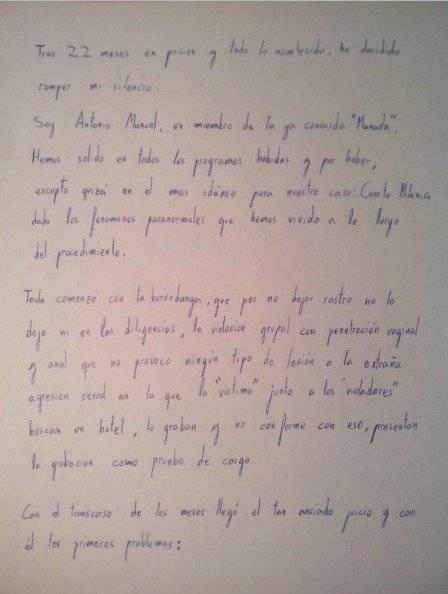 Tras 22 meses en prision y todo lo acontecido, he decidido
romper mi silencio.
Soy Antonio Manuel, un miembro de la ya conocida "Manada".
Hemos salido en todos los programas habidos y por haber,
excepto quizá en el mas idóneo para nuestro caso: Cuarto Milenio,
dado los fenomenos paranormales que hemos vivido a lo largo
del procedimiento.
Todo comenzó con la burundanga, que por no dejar rastro no lo
deja ni en las diligencias, la violacion grupal con penetración vaginal
y anal que no provoco ningún tipo de lesión a la extraña
agresion sexual en la que la "victima" junto a los "violadores"
buscan un hotel, lo graban y no conforme con eso, presentan
la grabacion como prueba de cargo.
Con el transcurso de los meses llegó el tan ansiado juicio y con
él los primeros problemas: